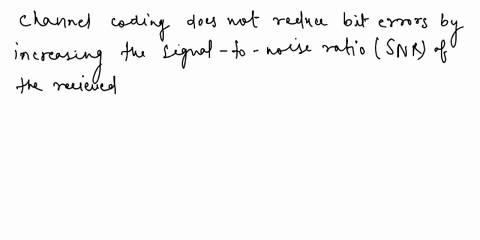 Channel coding does not reduce bit errors by
increasing the signal-to-noise ratio (SNR) of
the recieved